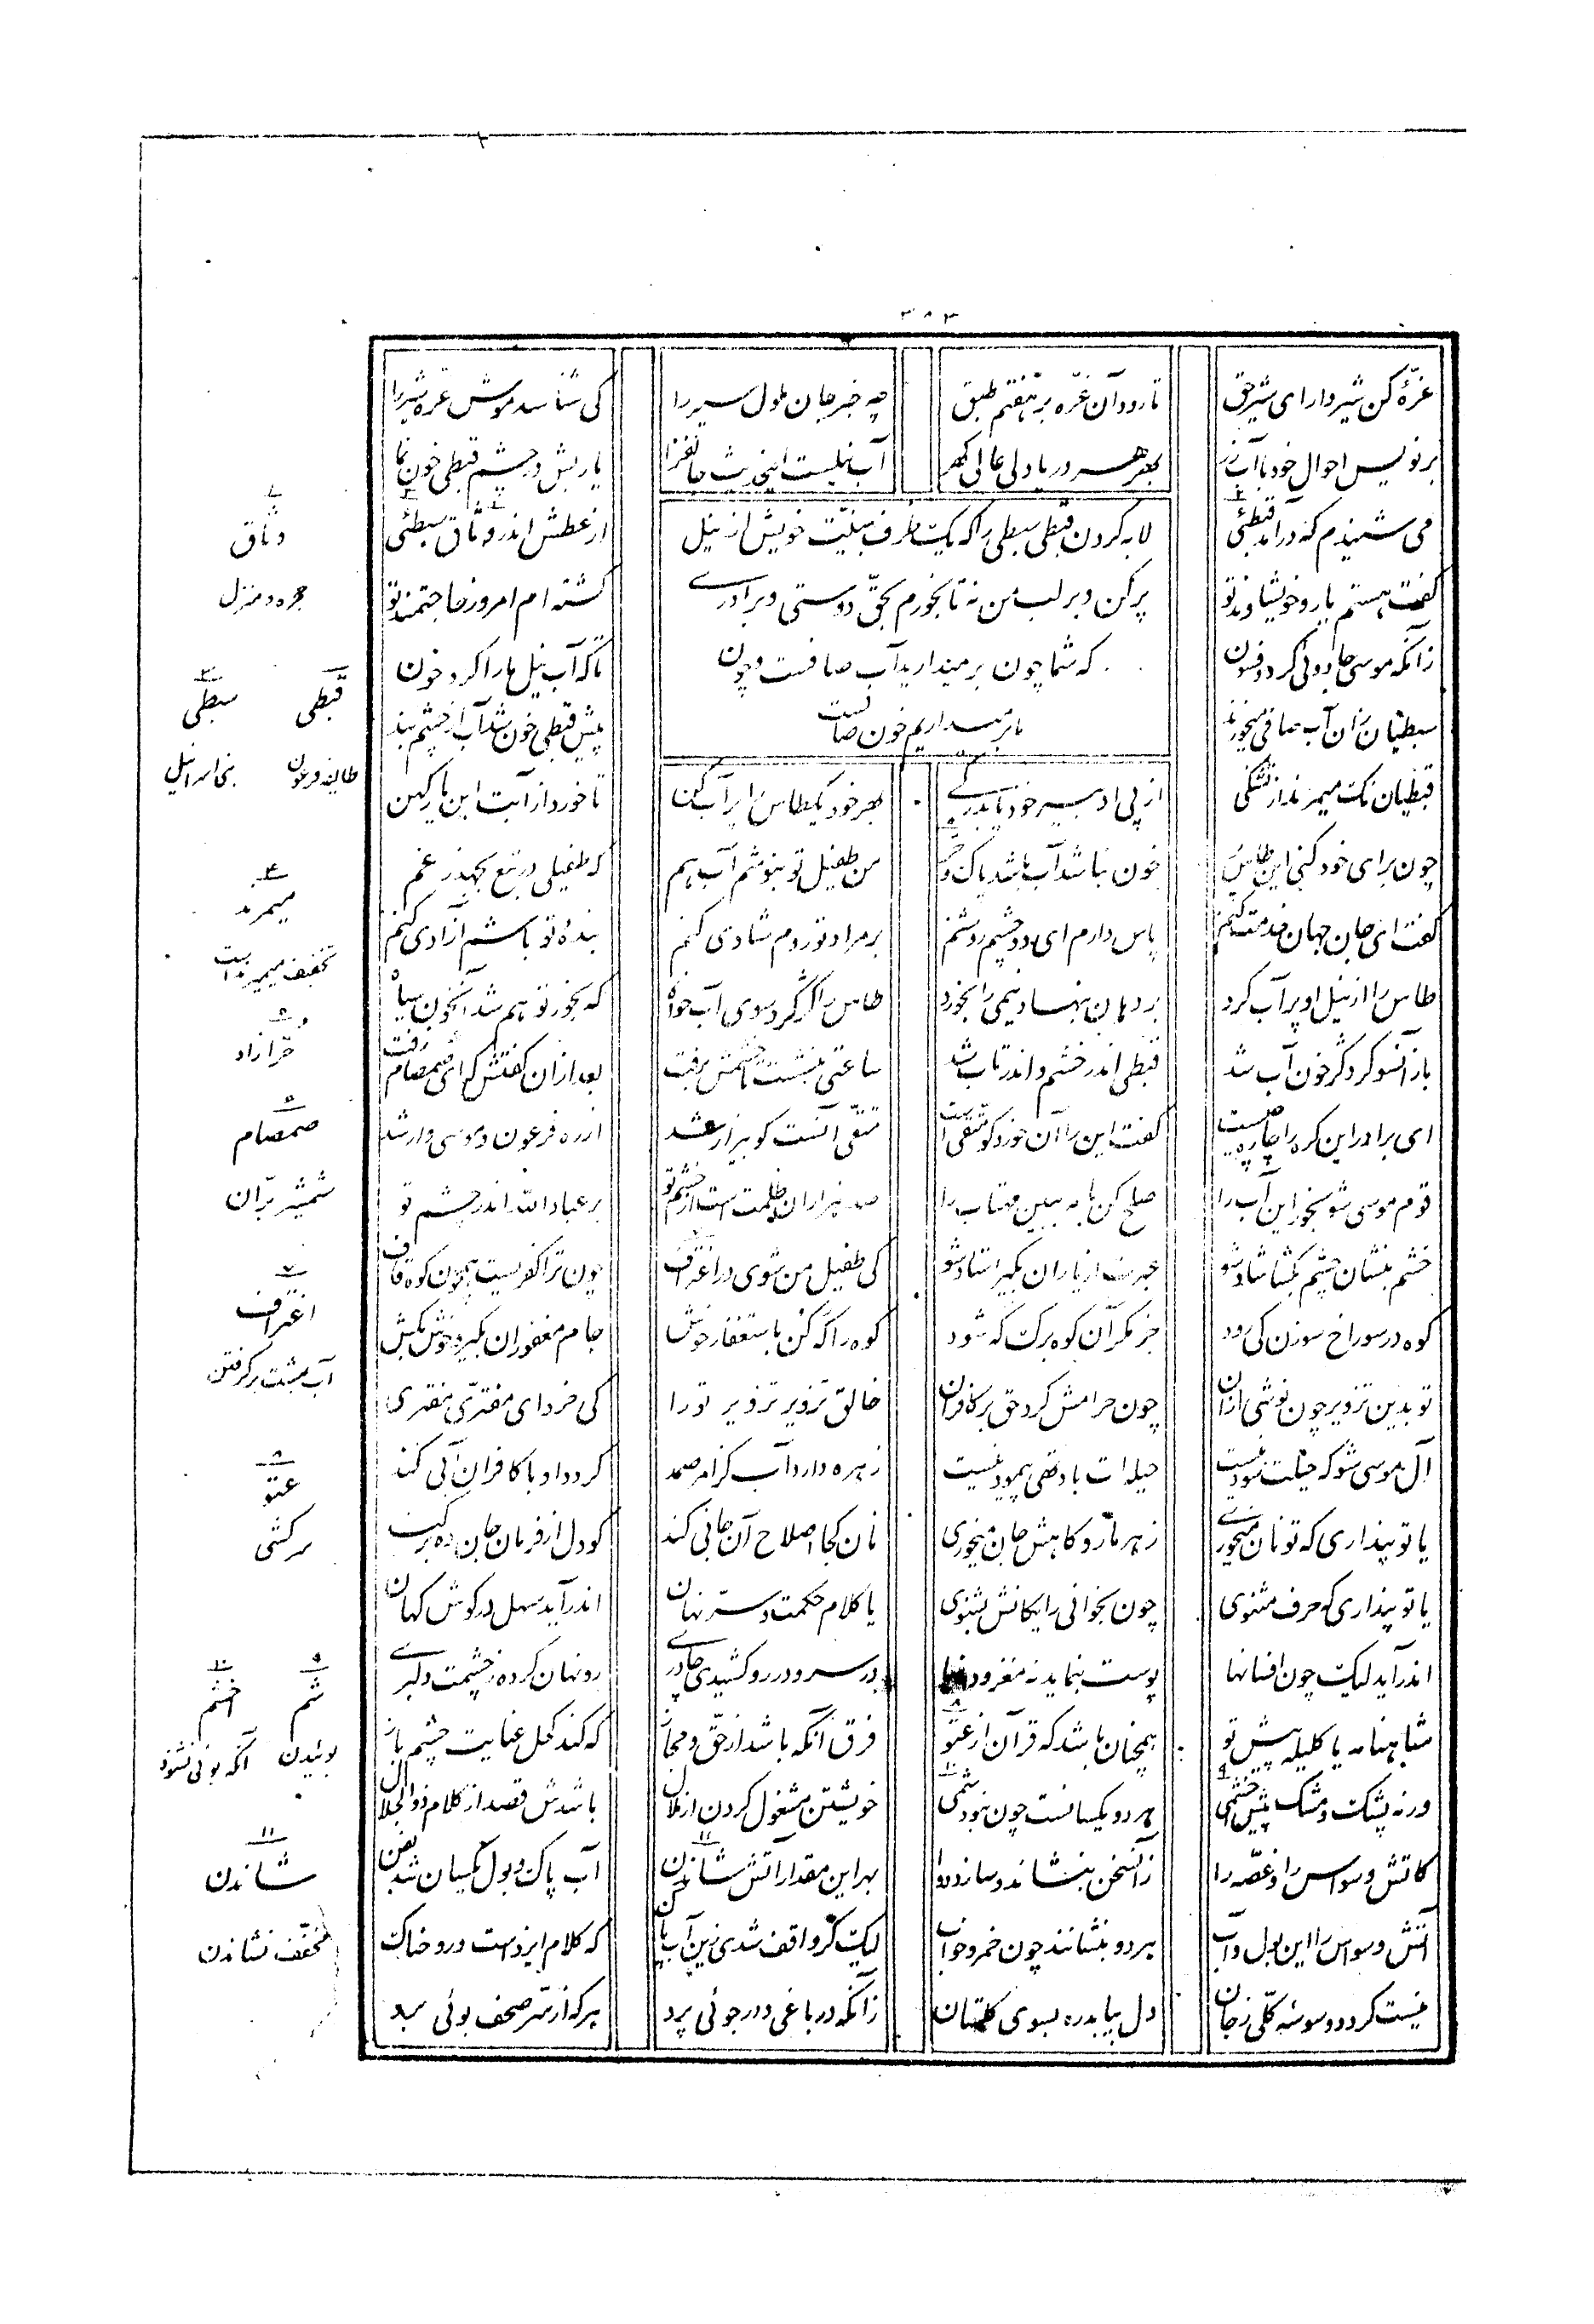 ۳۸۳
غرّهٔ کن شیروار ای شیر حق تا رود آن غرّه بر هفتم طبق چه خبر جان ملول سیر را کی شناسد موش غره شیر را
بر نویس احوال خود با آب زر بهر هر دریا دلی عالی گهر آب نیلست این حدیث جانفزا یا ربش در چشم قبطی خون نما
لابه کردن قبطی سبطی را که یک ظرف بنیّت خویش از نیل
پر کن و بر لب من نه تا بخورم بحقّ دوستی و برادری
که شما چون برمیدارید آب صافست و چون
ما برمیداریم خون صافست
می شنیدم که درآمد قبطئی از عطش اندر وثاق سبطئی
گفت هستم یار و خویشاوند تو گشته ام امروز حاجتمند تو
زانکه موسی جادوئی کرد و فسون تا که آب نیل ما را کرد خون
سبطیان زان آب صافی میخورند پیش قبطی خون شد آب از چشم بند
قبطیان نک میمرند از تشنگی از پی ادبیر خود یا بدرگی بهر خود یک طاس را پر آب کن تا خورد از آبت این یار کهن
چون برای خود کنی این طاس پر خون نباشد آب باشد پاک و حر من طفیل تو بنوشم آب هم که طفیلی در تبع بجهد ز غم
گفت ای جان جهان خدمت کنم پاس دارم ای دو چشم روشنم بر مراد تو روم شادی کنم بندهٔ تو باشم آزادی کنم
طاس را از نیل او پر آب کرد بر دهان بنهاد و نیمی را بخورد طاس را کژ کرد سوی آب خواه که بخور تو هم شد آن خون سیاه
باز آنسو کرد کژ خون آب شد قبطی اندر خشم و اندر تاب شد ساعتی بنشست تا خشمش برفت بعد از آن گفتش که ای صمصام زفت
ای برادر این گره را چاره چیست گفت این را آن خورد کو متقی است متقی آنست کو بیزار شد از ره فرعون و موسی وار شد
قوم موسی شو بخور این آب را صلح کن با مه ببین مهتاب را صد هزاران ظلمت است از خشم تو بر عباد الله اندر چشم تو
خشم بنشان چشم بگشا شاد شو عبرت از یاران بگیر استاد شو کی طفیل من شوی در اغتراف چون ترا کفریست همچون کوه قاف
کوه در سوراخ سوزن کی رود جز مگر آن کوه برگ که شود کوه را که کن باستغفار خوش جام مغفوران بگیر و خوش بکش
تو بدین تزویر چون نوشی از آن چون حرامش کرد حق بر کافران خالق تزویر تزویر تو را کی خرد ای مفتری مفتری
آل موسی شو که حیلت سود نیست حیله ات باد تهی پیمودنیست زهره دارد آب کز امر صمد گردد او با کافران آبی کند
یا تو پنداری که تو نان میخوری زهر مار و کاهش جان میخوری نان کجا اصلاح آن جانی کند کو دل از فرمان جان ده برکند
یا تو پنداری که حرف مثنوی چون بخوانی رایگانش بشنوی یا کلام حکمت و سرّ نهان اندر آید سهل در گوش کهان
اندر آید لیک چون افسانها پوست بنماید نه مغز و دانها در سر و در رو کشیدی چادری رو نهان کرده ز چشمت دلبری
شاهنامه یا کلیله پیش تو همچنان باشد که قرآن از عتو فرق آنگه باشد از حقّ و مجاز که کند کحل عنایت چشم باز
ورنه پشک و مشک پیش اخشمی هر دو یکسانست چون نبود شمی خویشتن مشغول کردن از ملال باشدش قصد از کلام ذوالجلال
کاتش وسواس را و غصّه را زان سخن بنشاند و سازد دوا بهر این مقدار آتش شاندن آب پاک و بول یکسان شد بفن
آتش وسواس را این بول و آب هر دو بنشانند چون خمر و خواب لیک گر واقف شدی زین آب پاک که کلام ایزد است و روحناک
نیست گردد وسوسهٔ کلّی ز جان دل بیابد ره بسوی گلستان زانکه در باغی و در جوئی پرد هر که از سرّ صحف بوئی برد
وثاق
حجره و منزل
قبطی سبطی
طایفهٔ فرعون بنی اسرائیل
میمرند
تخفیف میمیرند است
حر آزاد
صمصام
شمشیر برّان
اغتراف
آب بمشت برگرفتن
عتو
سرکشی
شم اخشم
بوئیدن آنکه بوئی نشنود
شاندن
مخفف نشاندن